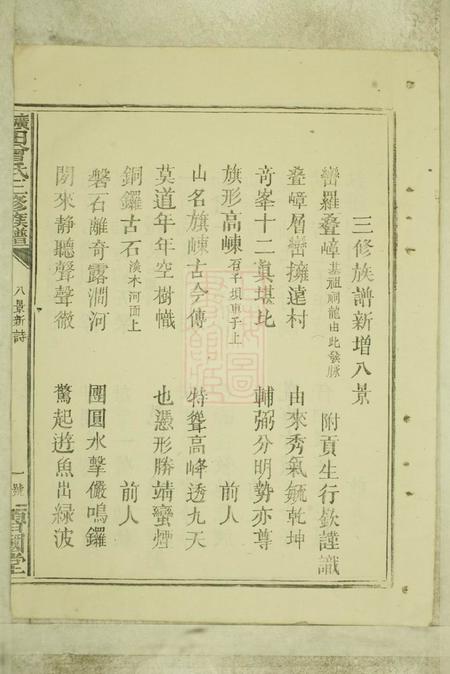 三修族譜新增八景
巒羅叠嶂 基祖祠龍由此發脉 附貢生行欽謹識
叠嶂層巒擁遠村 由來秀氣毓乾坤
奇峯十二真堪比 輔弼分明勢亦尊
旗形高崠 石子坝車子上 前人
山名旗崠古今傳 特聳高峰透九天
莫道年年空樹幟 也憑形勝靖蠻煙
銅鑼古石 淡木河面上 前人
磐石離奇露澗河 團圓水擊儼鳴鑼
閑來静聽聲聲徹 驚起遊魚出綠波
田曾氏三修族譜
八景新詩
一號